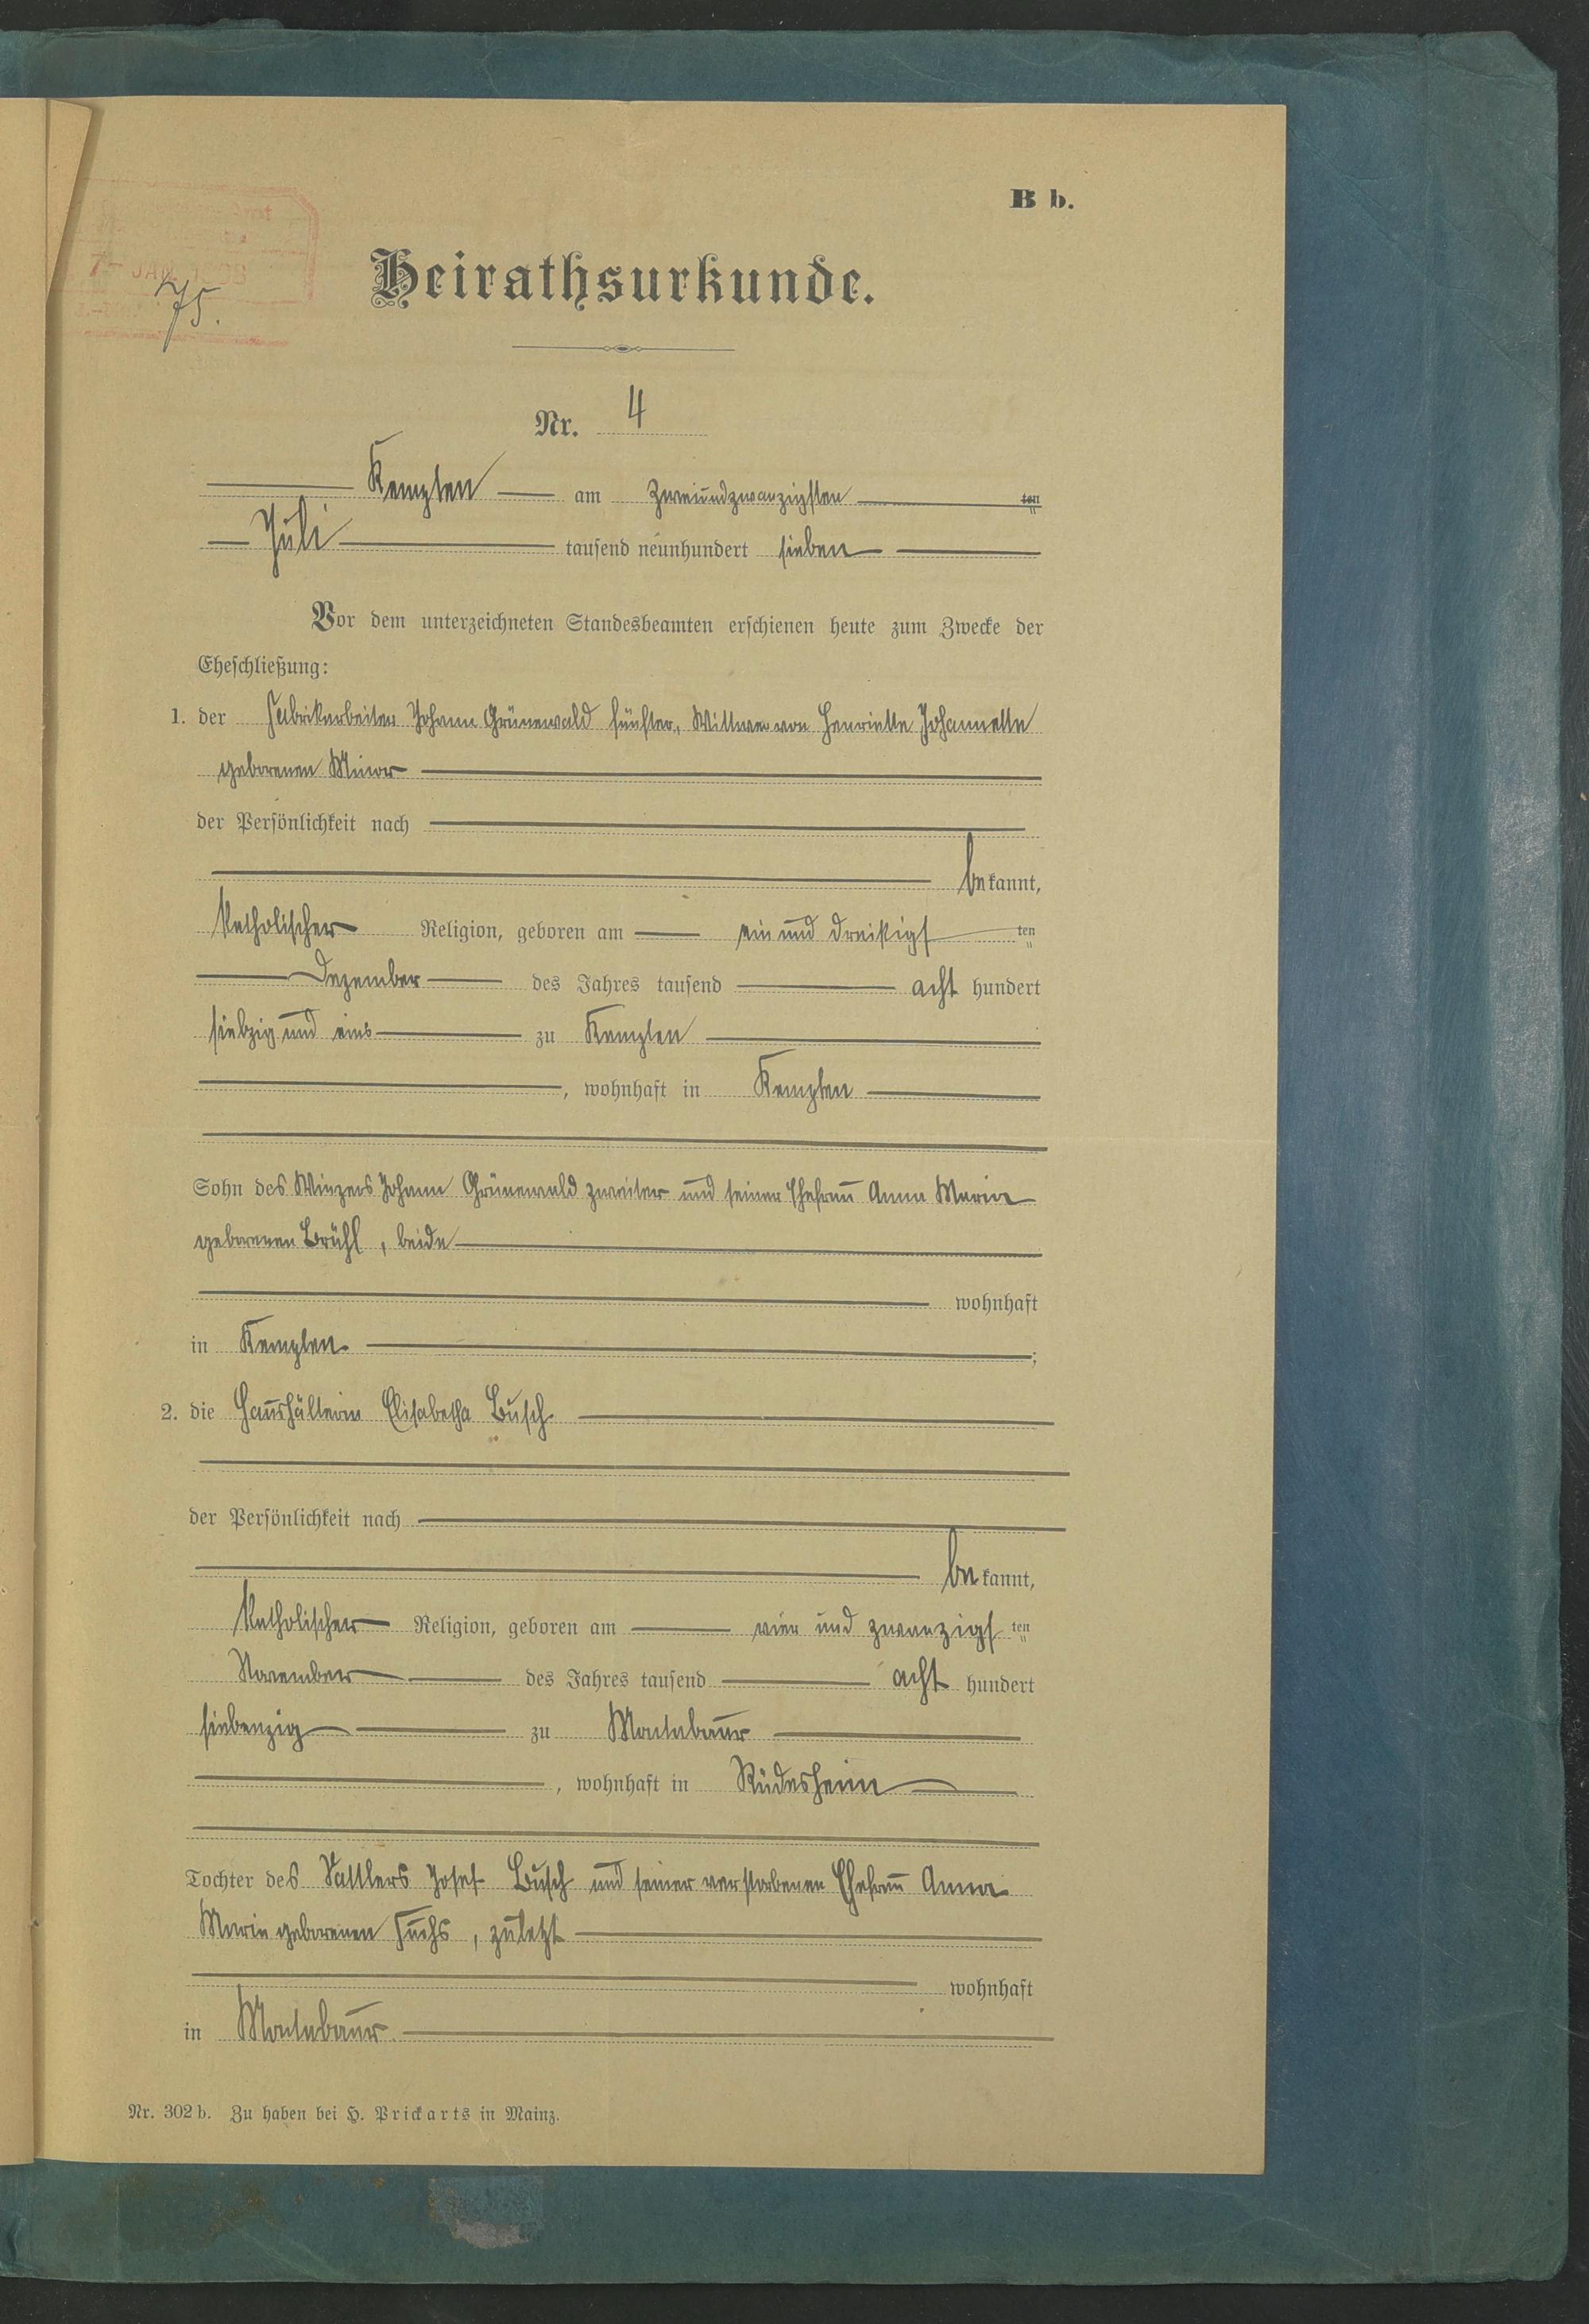 B b.
7- JAN. 1908
75.
Heirathsurkunde.
Nr. 4
Kempten am zweiundzwanzigsten ten
Juli tausend neunhundert sieben
Vor dem unterzeichneten Standesbeamten erschienen heute zum Zwecke der
Eheschließung:
1. der Fabrikarbeiter Johann Grünewald fünfter, Wittwer von Henriette Johannette
geborenen Minor
der Persönlichkeit nach
be kannt,
katholischer Religion, geboren am ein und dreißigs ten
Dezember des Jahres tausend acht hundert
siebzig und eins zu Kempten
, wohnhaft in Kempten
Sohn des Winzers Johann Grünewald zweiter und seiner Ehefrau Anna Maria
geborenen Brühl, beide
wohnhaft
in Kempten ;
2. die Haushälterin Elisabetha Busch
der Persönlichkeit nach
be kannt,
katholischer Religion, geboren am vier und zwanzigs ten
November des Jahres tausend acht hundert
siebenzig zu Montabaur
, wohnhaft in Rüdesheim
Tochter des Sattlers Josef Busch und seiner verstorbenen Ehefrau Anna
Maria geborenen Fuchs, zuletzt
wohnhaft
in Montabaur
Nr. 302 b. Zu haben bei H. Prickarts in Mainz.